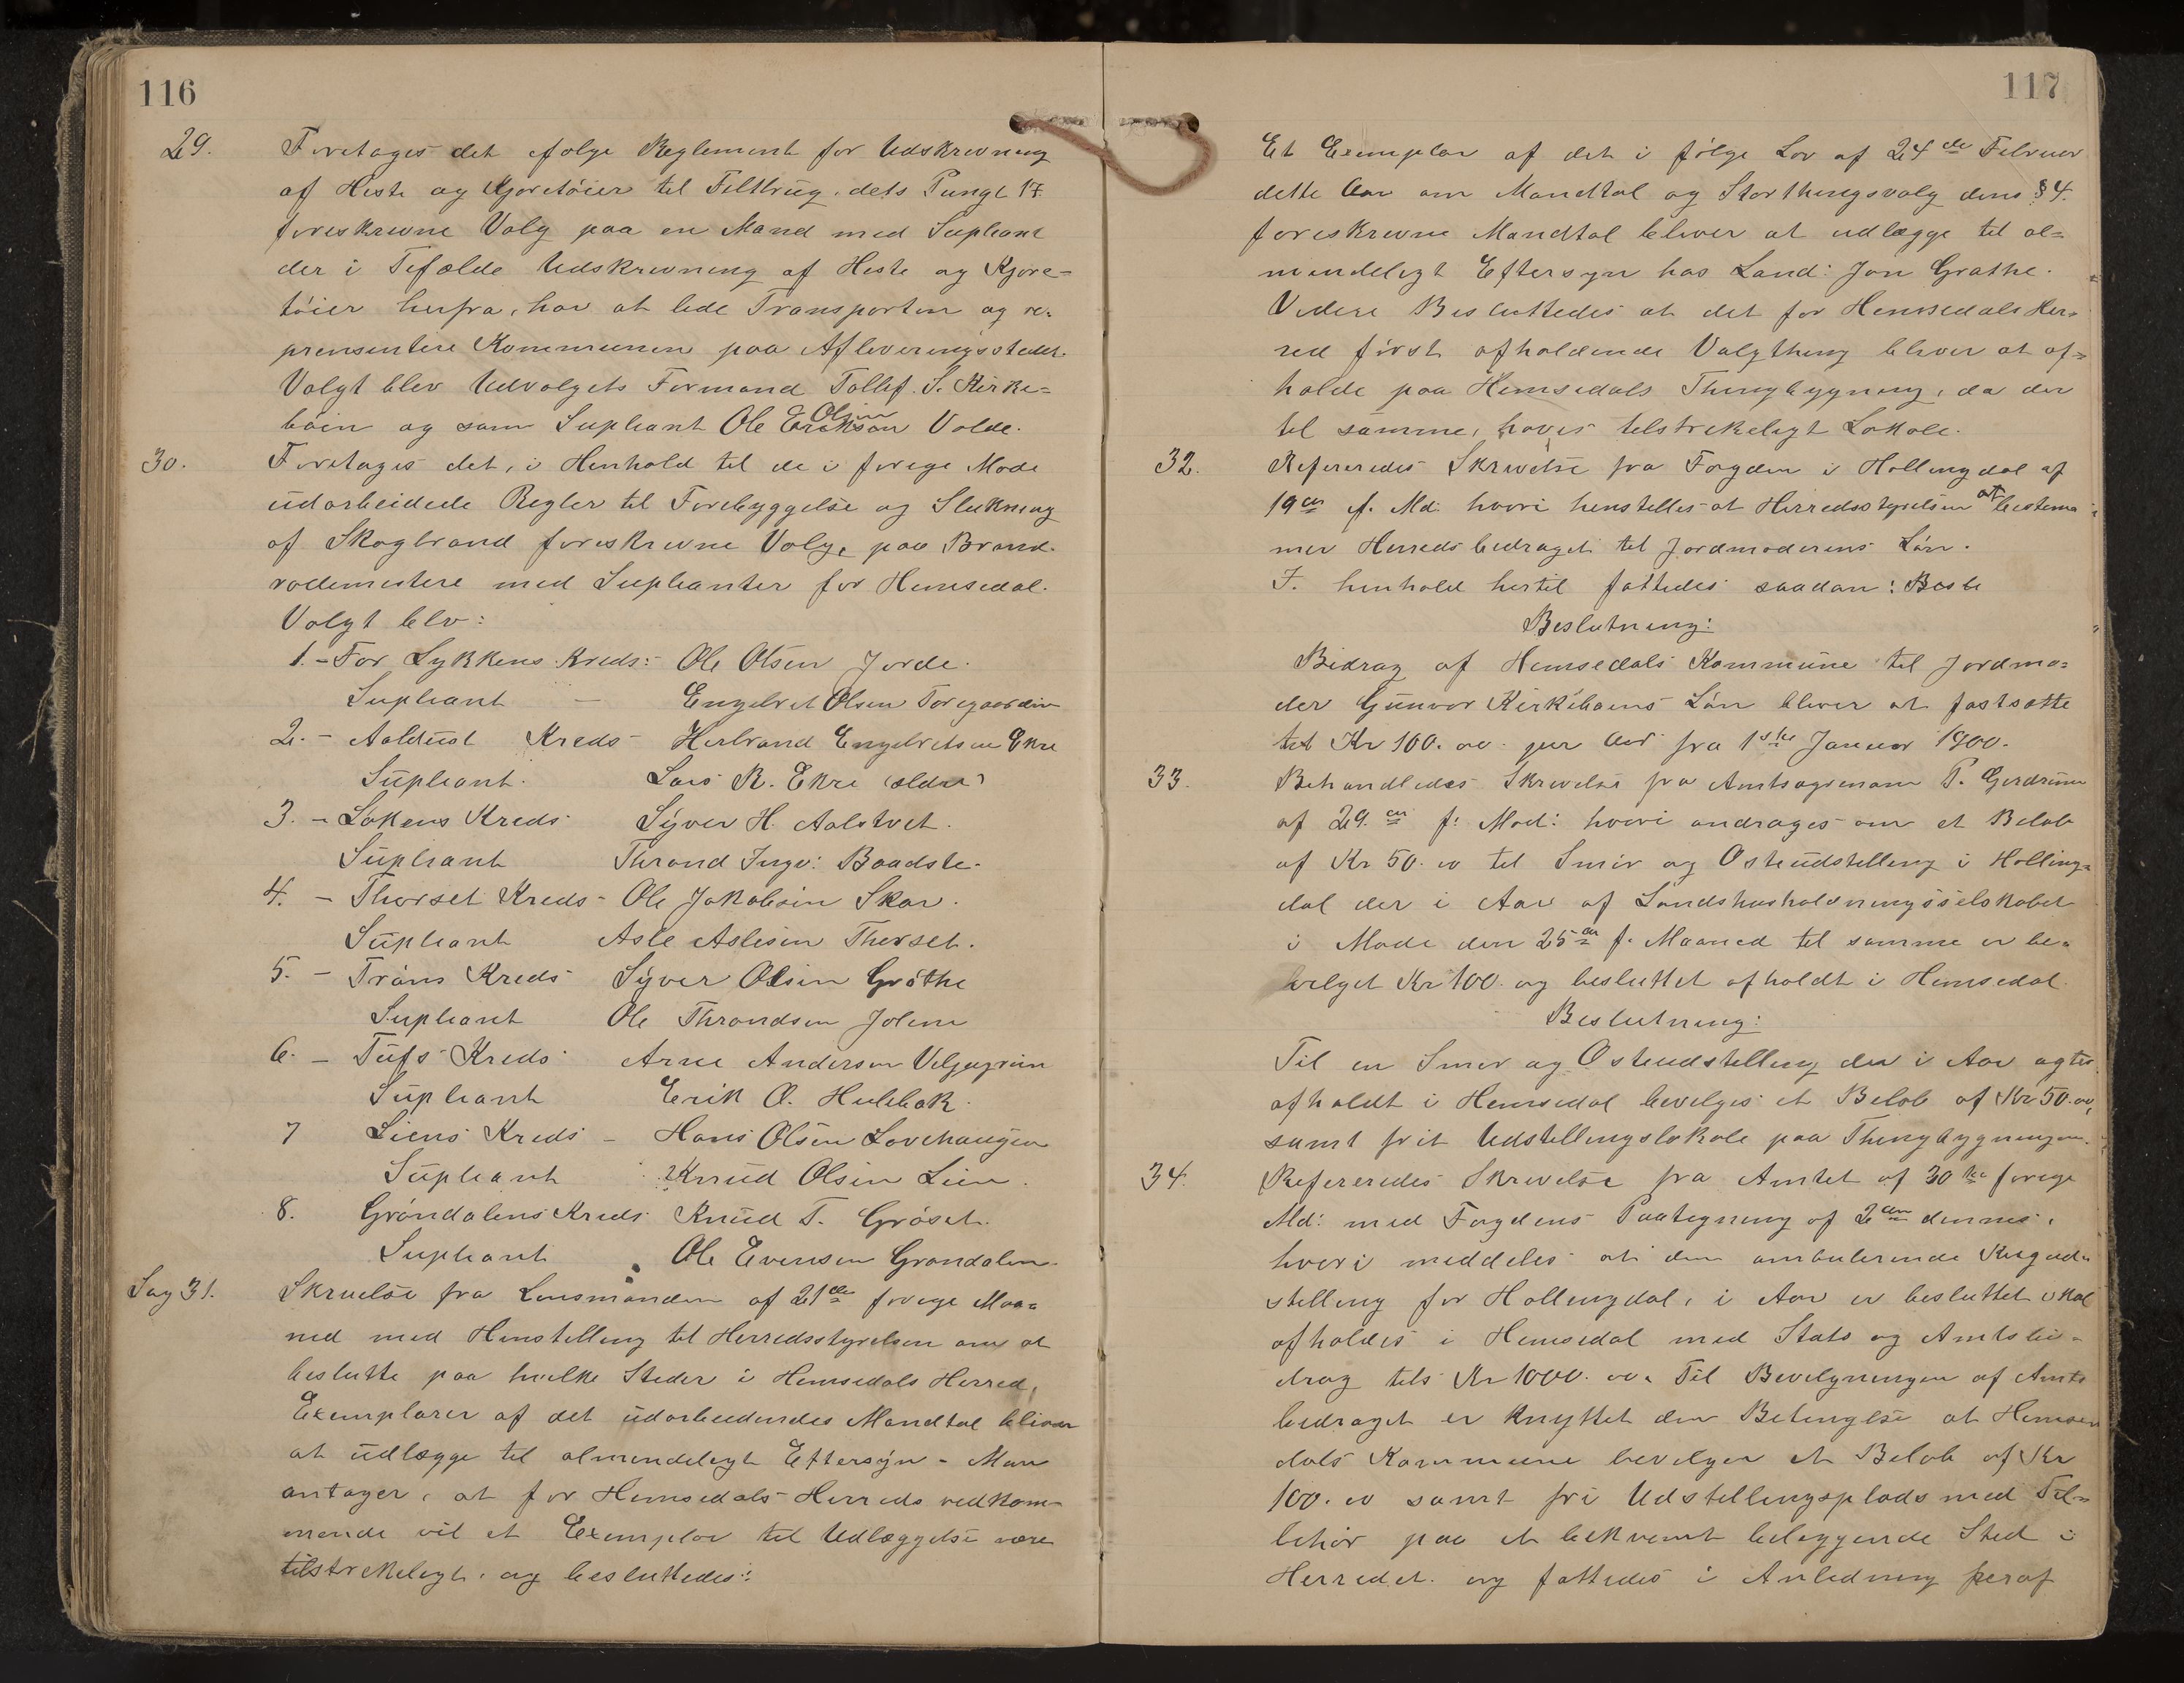 116
29. Foretages det ifølge Reglement for Udskrivning
af Heste og Kjøretøier til Feltbrug, dets Pungt 17.
foreskrevne Valg paa en Mand med Supleant
der i Tifælde Udskrivning af Heste og Kjøre-
tøier herfra, har at lede Transporten og re-
prensentere Kommunen paa Afleveringsstedet.
Valgt blev Udvalgets Formand Tollef S. Kirke-
bøin og som Supleant Ole Olsen Eriksen Volde.
30. Foretages det, i Henhold til de i forige Møde
udarbeidede Regler til Forebyggelse og Slukning
af Skogbrand foreskrevne Valg, paa Brand-
rodemestere med Supleanter for Hemsedal.
Valgt blev:
1. - For Lykkens Kreds: Ole Olsen Jorde.
Supleant - Engebret Olsen Toregaarden
2. - Aaldust Kreds - Herbrand Engebretsen Ekre
Supleant. Lars R. Ekre (ældre)
3. - Løkens Kreds Syver H. Aalstvet.
Supleant Thrond Ingv: Baadste.
4. - Thorset Kreds - Ole Jakobsen Skar.
Supleant Asle Aslesen Thorset.
5. - Trøins Kreds Syver Olsen Grøthe
Supleant Ole Throndsen Jolem
6. - Tufs Kreds Arne Andersen Veljugrein
Supleant Erik O. Hulbak.
7 Liens Kreds - Hans Olsen Lovehaugen
Supleant Knud Olsen Lien.
8. Grøndalens Kreds Knud T. Grøset.
Supleant Ole Evensen Grøndalen.
Sag 31. Skrivelse fra Lensmanden af 21de forige Maa-
ned med Henstilling til Herredsstyrelsen om at
beslutte paa hvilke Steder i Hemsedals Herred,
Exemplarer af det udarbeidendes Mandtal bliver
at udlægge til almindeligt Eftersyn - Man
antager, at for Hemsedals Herreds vedkom-
mende vil et Exemplar til Udlæggelse være
tilstrekeligt, og besluttedes:
117
Et Exemplar af det i følge Lov af 24de Februar
dette Aar om Mandtal og Storthingsvalg dens §4.
foreskrevne Mandtal bliver at udlægge til al-
mindeligt Eftersyn hos Land: Jon Grøthe.
Videre Besluttedes at det for Hemsedals Her-
red først afholdende Valgthing bliver at af-
holde paa Hemsedals Thingbygning, da der
til samme, haves tilstrekeligt Lokale.
32. Refereredes Skrivelse fra Fogden i Hallingdal af
19de f. Md. hvori henstilles at Herredsstyrelsen at bestem-
mer Herredsbedraget til Jordmoderens Løn.
I. henhold hertil fattedes saadan: Besle
Beslutning:
Bidrag af Hemsedals Kommune til Jordmo-
der Gunvor Kirkebøens Løn bliver at fastsætte
til Kr 100.00 per Aar fra 1ste Januar 1900.
33. Behandledes Skrivelse fra Amtsagrenom T. Gjerdrum
af 29de f: Mod: hvori andrages om et Beløb
af Kr. 50.00 til Smør og Osteudstelling i Halling-
dal der i Aar af Landshusholdningsselskabet
i Møde den 25de f. Maaned til samme er be-
vilget Kr 100. og besluttet afholdt i Hemsedal.
Beslutning:
Til en Smør og Osteudstelling der i Aar agtes
afholdt i Hemsedal bevilges et Beløb af Kr 50.00,
samt frit Udstellingslokale paa Thingbygningen.
34. Refereredes Skrivelse fra Amtet af 30te forige
Md: med Fogdens Paategning af 2den dennes,
hvori meddeles at den ambulerende Kvægud-
stelling for Hallingdal, i Aar er besluttet skal
afholdes i Hemsedal med Stats og Amtsbi-
drag tils Kr 1000.00. Til Bevilgningen af Amts
bedraget er knyttet den Betingelse at Hemse-
dals Kommune bevilger et Beløb af Kr
100.00 samt fri Udstellingsplads med Til-
behør paa et bekvemt beleggende Sted i
Herredet. og fattedes i Anledning heraf